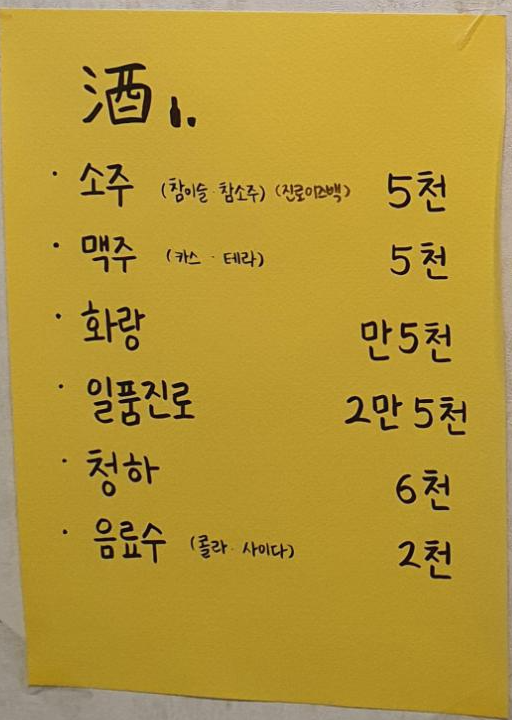 酒
· 소주 (참이슬·참소주) (진로이즈백) 5천
· 맥주 (카스·테라) 5천
· 화랑 만5천
· 일품진로 2만5천
· 청하 6천
· 음료수 (콜라·사이다) 2천